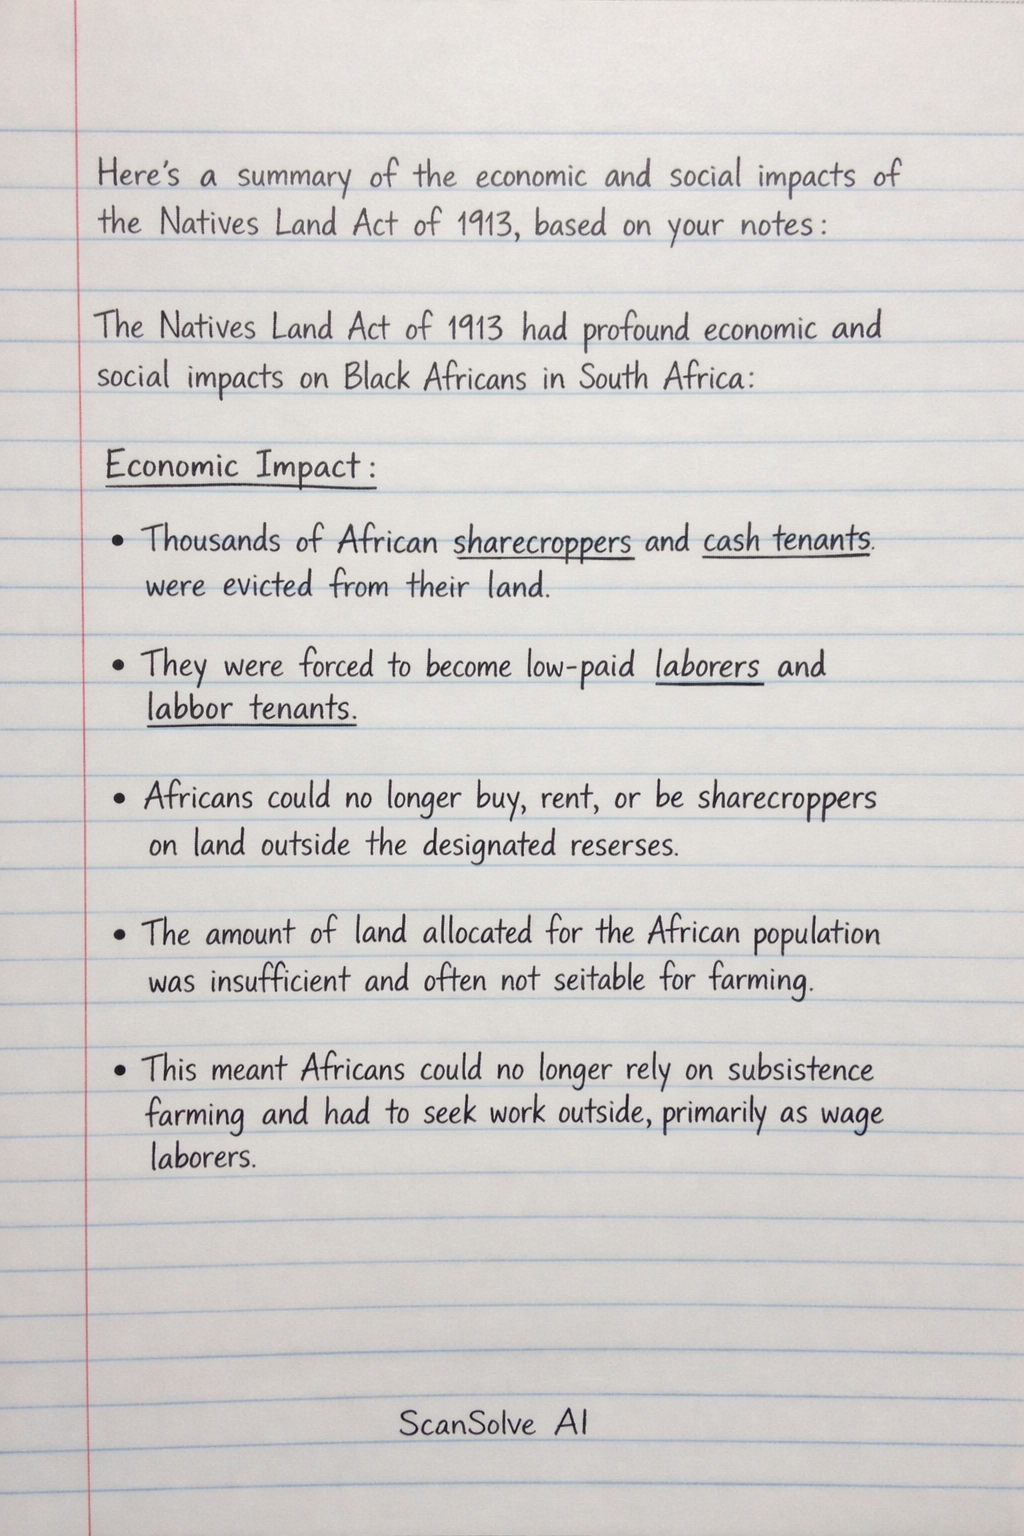 Here's a summary of the economic and social impacts of
the Natives Land Act of 1913, based on your notes:
The Natives Land Act of 1913 had profound economic and
social impacts on Black Africans in South Africa:
Economic Impact:
• Thousands of African sharecroppers and cash tenants.
were evicted from their land.
• They were forced to become low-paid laborers and
labbor tenants.
• Africans could no longer buy, rent, or be sharecroppers
on land outside the designated reserses.
• The amount of land allocated for the African population
was insufficient and often not seitable for farming.
• This meant Africans could no longer rely on subsistence
farming and had to seek work outside, primarily as wage
laborers.
ScanSolve AI